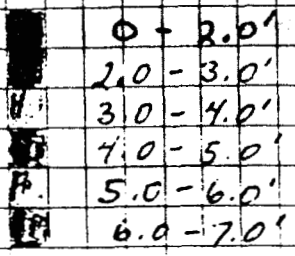 0 - 2.0'
2.0 - 3.0'
3.0 - 4.0'
4.0 - 5.0'
5.0 - 6.0'
6.0 - 7.0'